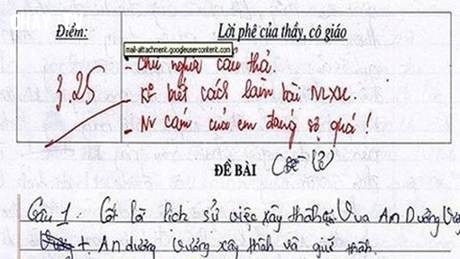 Điểm:
Lời phê của thầy, cô giáo
mail-attachment.googleusercontent.com
3,25
- Chữ người cẩu thả.
- biết cách làm bài NLXH.
- của em đáng sợ quá!
ĐỀ BÀI
Câu 1: Cốt lõi lịch sử việc xây thành Vua An Dương
+ An dương vương xây thành và giữ thành.